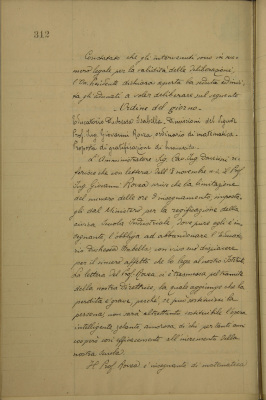 312
Constatato che gli intervenuti sono in nu-
mero legale per la validità delle deliberazioni,
l'On. Presidente dichiara aperta la seduta ed invi-
ta gli adunati a voler deliberare sul seguente
Ordine del giorno
Educatorio Duchessa Isabella. Dimissioni del Signor
Prof. Ing. Giovanni Rossa ordinario di matematica -
Proposta di gratificazione di
L'Amministratore Sig. Cav. Ing. ri-
ferisce che con lettera dell' 8 novembre u.s. il Prof.
Ing. Giovanni Rossa unisce che la limitazione
del numero delle ore d'insegnamento, impostagli
dal Ministero per la
Scuola Industriale
l'obbliga ad abbandonare l'Educatorio
Duchessa Isabella, con vivo suo dispiacere,
per il sincero affetto che lo lega al nostro
La lettera del Prof. Rossa ci è trasmessa pel tramite
della nostra Direttrice, la quale aggiunge che la
perdita è grave, perchè, se può
persona, non sarà altrettanto l'opera
intelligente, zelante, amorosa, di chi per tanti anni
cooperò così efficacemente all'incremento della
nostra scuola.
Il Prof. Rossa è insegnante di matematica